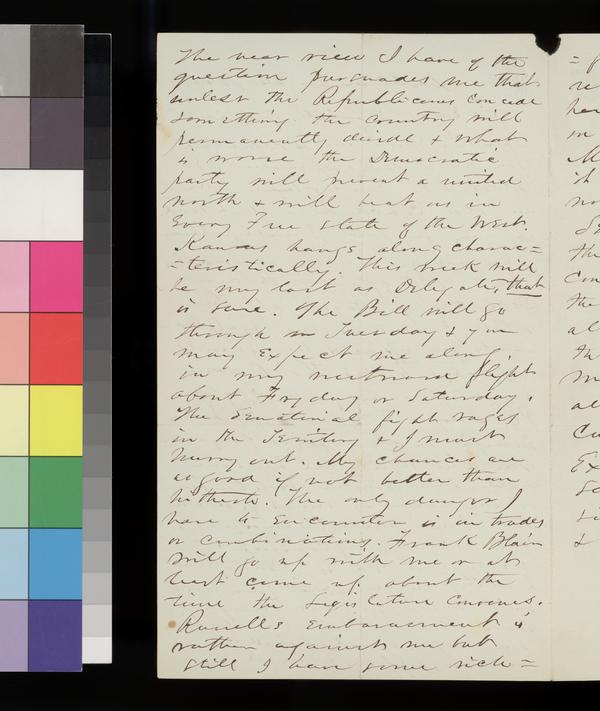 The near view I have of the
question pursuades me that
unless the Republicans concede
something the country will
permanently divide & what
is worse the Democratic
party will prevent a united
north & will beat us in
Every Free State of the West.
Kansas hangs along charac=
=teristically. This week will
be my last as Delegate, that
is sure. The Bill will go
through on Tuesday & you
may Expect me along,
in my westward flight
about Fryday or Saturday.
The Senatorial fight rages
in the Territory & I must
hurry out. My chances are
as good if not better than
hitherto. The only danger I
have to encounter is in trades
or combinations. Frank Blair
will go up with me or at
least come up about the
time the Legislature convenes.
Russells Embarrassment is
rather against me but
still I have some rich=